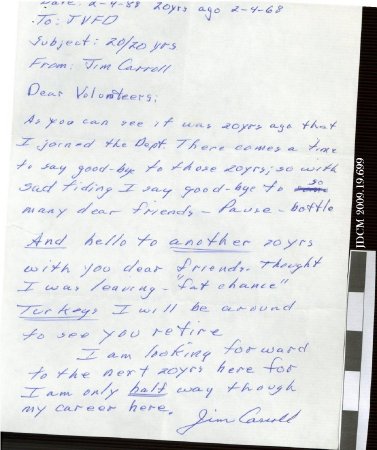 Date: 2-4-88 20yrs ago 2-4-68
To: JVFD
Subject: 20/20 yrs
From: Jim Carroll
Dear Volunteers;
As you can see it was 20yrs ago that
I joined the Dept. There comes a time
to say good-bye to those 20yrs; so with
sad tiding I say good-bye to so
many dear friends - Pause - bottle
And hello to another 20yrs
with you dear friends. Thought
I was leaving - "fat chance"
Turkeys I will be around
to see you retire
I am looking forward
to the next 20yrs here for
I am only half way though
my career here.
Jim Carroll
JDCM 2009.19.699